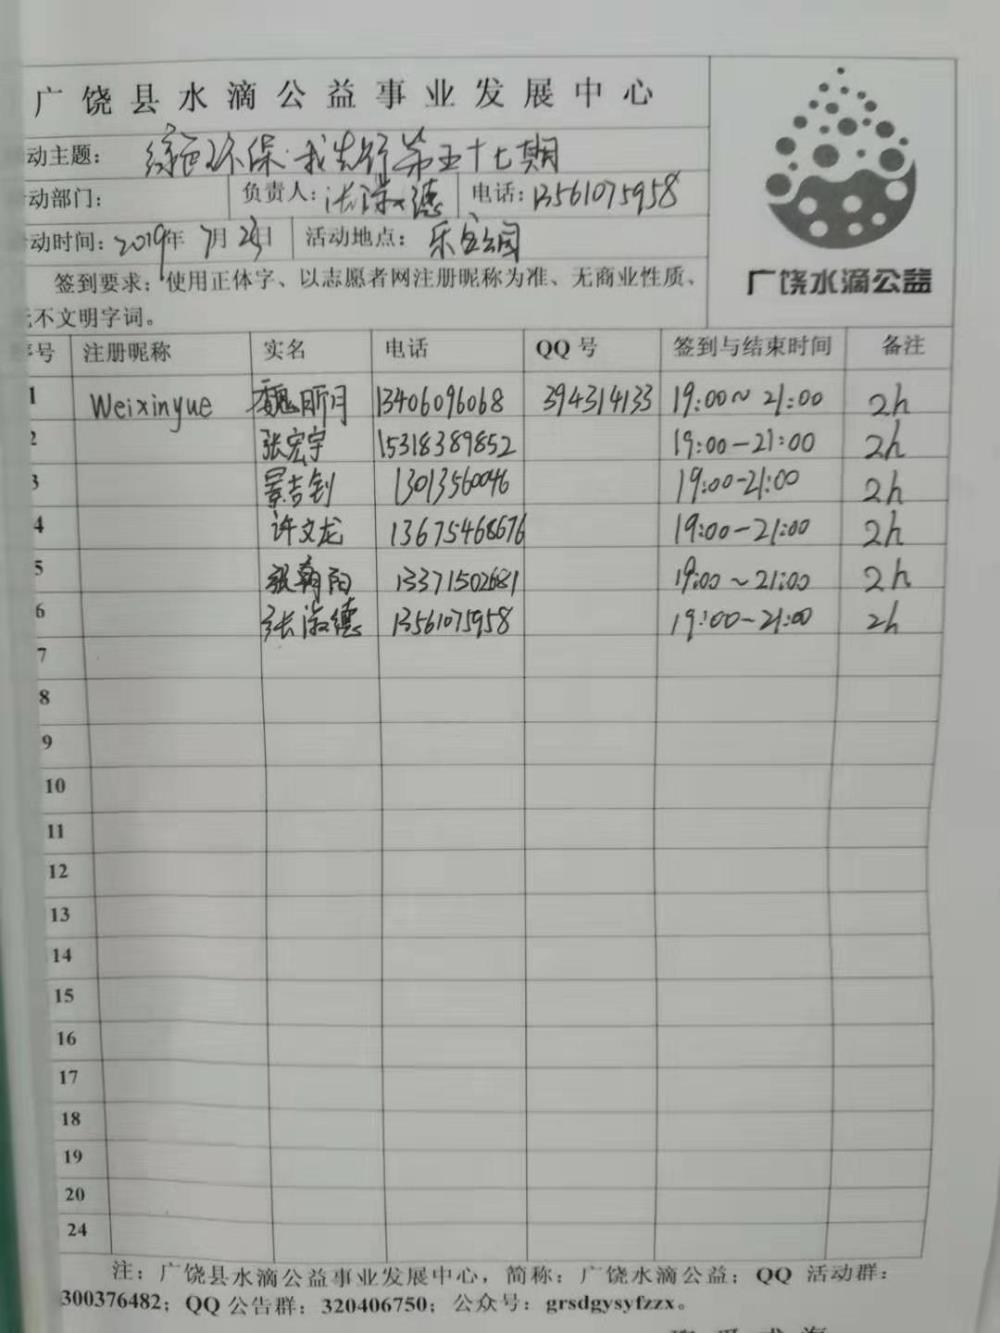 广饶县水滴公益事业发展中心
动主题：绿色环保·我先行第五十七期
动部门： 负责人：德 电话：13561075958
动时间：2019年7月2日 活动地点：乐安公园
签到要求：使用正体字、以志愿者网注册昵称为准、无商业性质、
不文明字词。
广饶水滴公益
号 注册昵称 实名 电话 QQ号 签到与结束时间 备注
1 Weixinyue 魏昕月 13406096068 394314133 19:00~21:00 2h
2 张宏宇 15318389852 19:00-21:00 2h
3 景吉钊 13013560046 19:00-21:00 2h
4 许文龙 13675468676 19:00-21:00 2h
5 张朝阳 13371502681 19:00~21:00 2h
6 张淑德 13561075958 19:00-21:00 2h
7
8
9
10
11
12
13
14
15
16
17
18
19
20
24
注：广饶县水滴公益事业发展中心，简称：广饶水滴公益；QQ 活动群：
300376482；QQ公告群：320406750；公众号：grsdgysyfzzx。